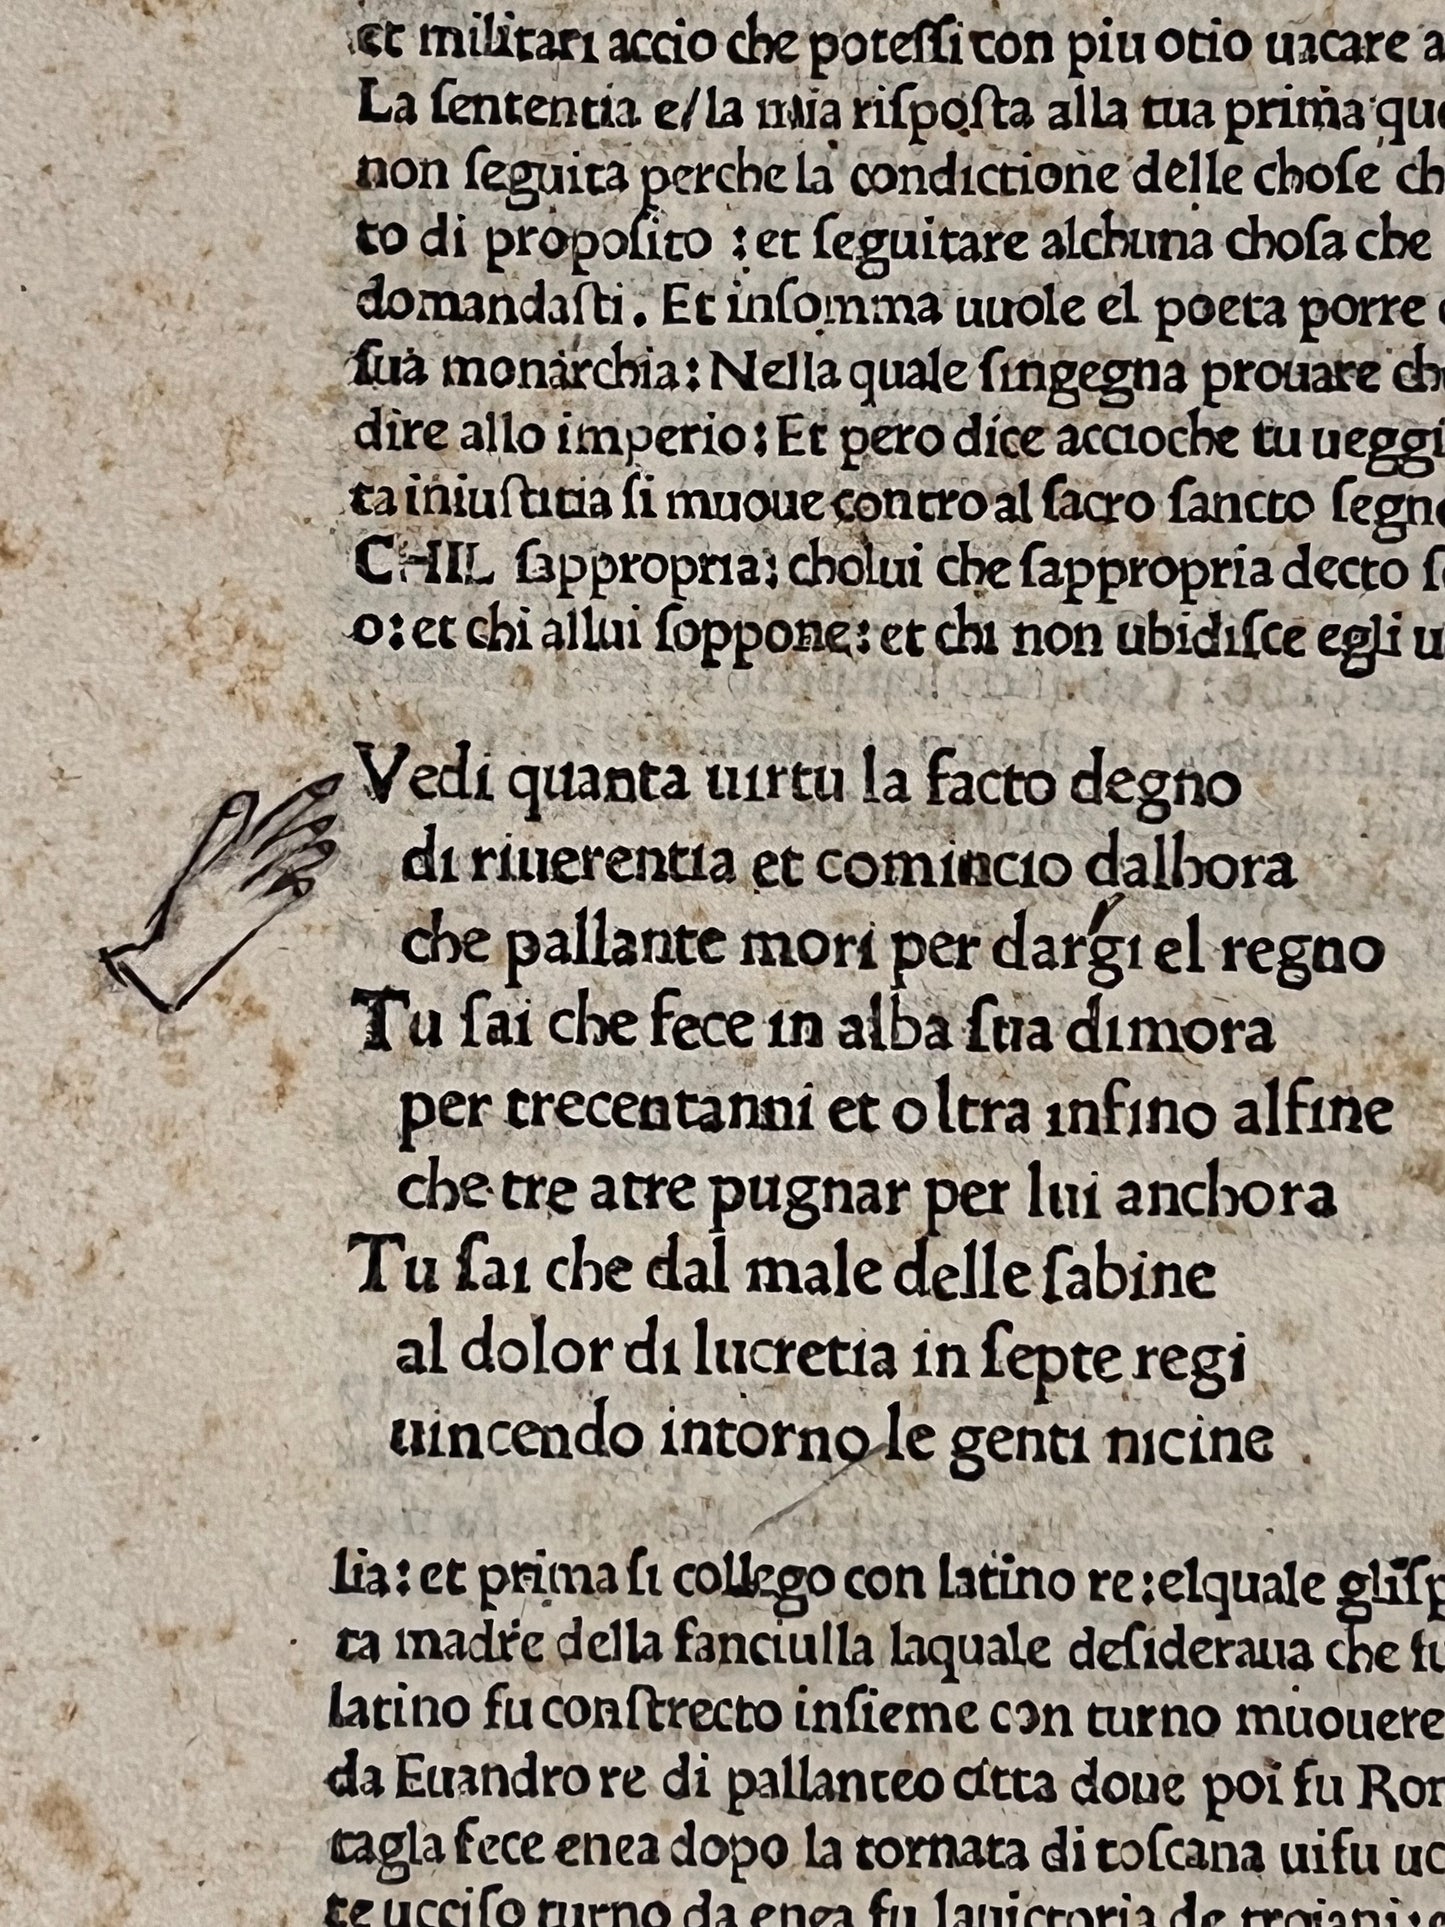 et militari accio che poteſſi con piu otio uacare a
La ſententia e/la mia riſpoſta alla tua prima que
non ſeguita perche la condictione delle choſe ch
to di propoſito : et ſeguitare alchuna choſa che
domandaſti. Et inſomma uuole el poeta porre
ſua monarchia: Nella quale ſingegna prouare che
dire allo imperio: Et pero dice accioche tu ueggi
ta iniuſtitia ſi muoue contro al ſacro ſancto ſegno
CHIL ſappropria: cholui che ſappropria decto ſe
o: et chi allui ſoppone: et chi non ubidiſce egli u
Vedi quanta uirtu la facto degno
di riuerentia et comincio dalhora
che pallante mori per dargi el regno
Tu ſai che fece in alba ſua dimora
per trecentanni et oltra infino alfine
che tre atre pugnar per lui anchora
Tu ſai che dal male delle ſabine
al dolor di lucretia in ſepte regi
uincendo intorno le genti nicine
lia: et prima ſi collego con latino re: elquale gliſp
ta madre della fanciulla laquale deſideraua che fu
latino fu conſtrecto inſieme con turno muouere
da Euandro re di pallanteo citta doue poi fu Rom
tagla fece enea dopo la tornata di toſcana uifu uc
te ucciſo turno da enea fu lauictoria de troiani: e